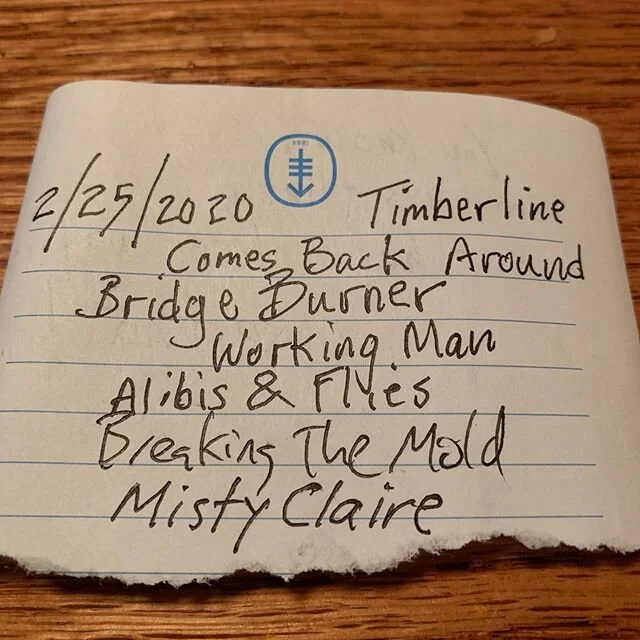 1884
2/25/2020 Timberline
Comes Back Around
Bridge Burner
Working Man
Alibis & Flies
Breaking The Mold
Misty Claire